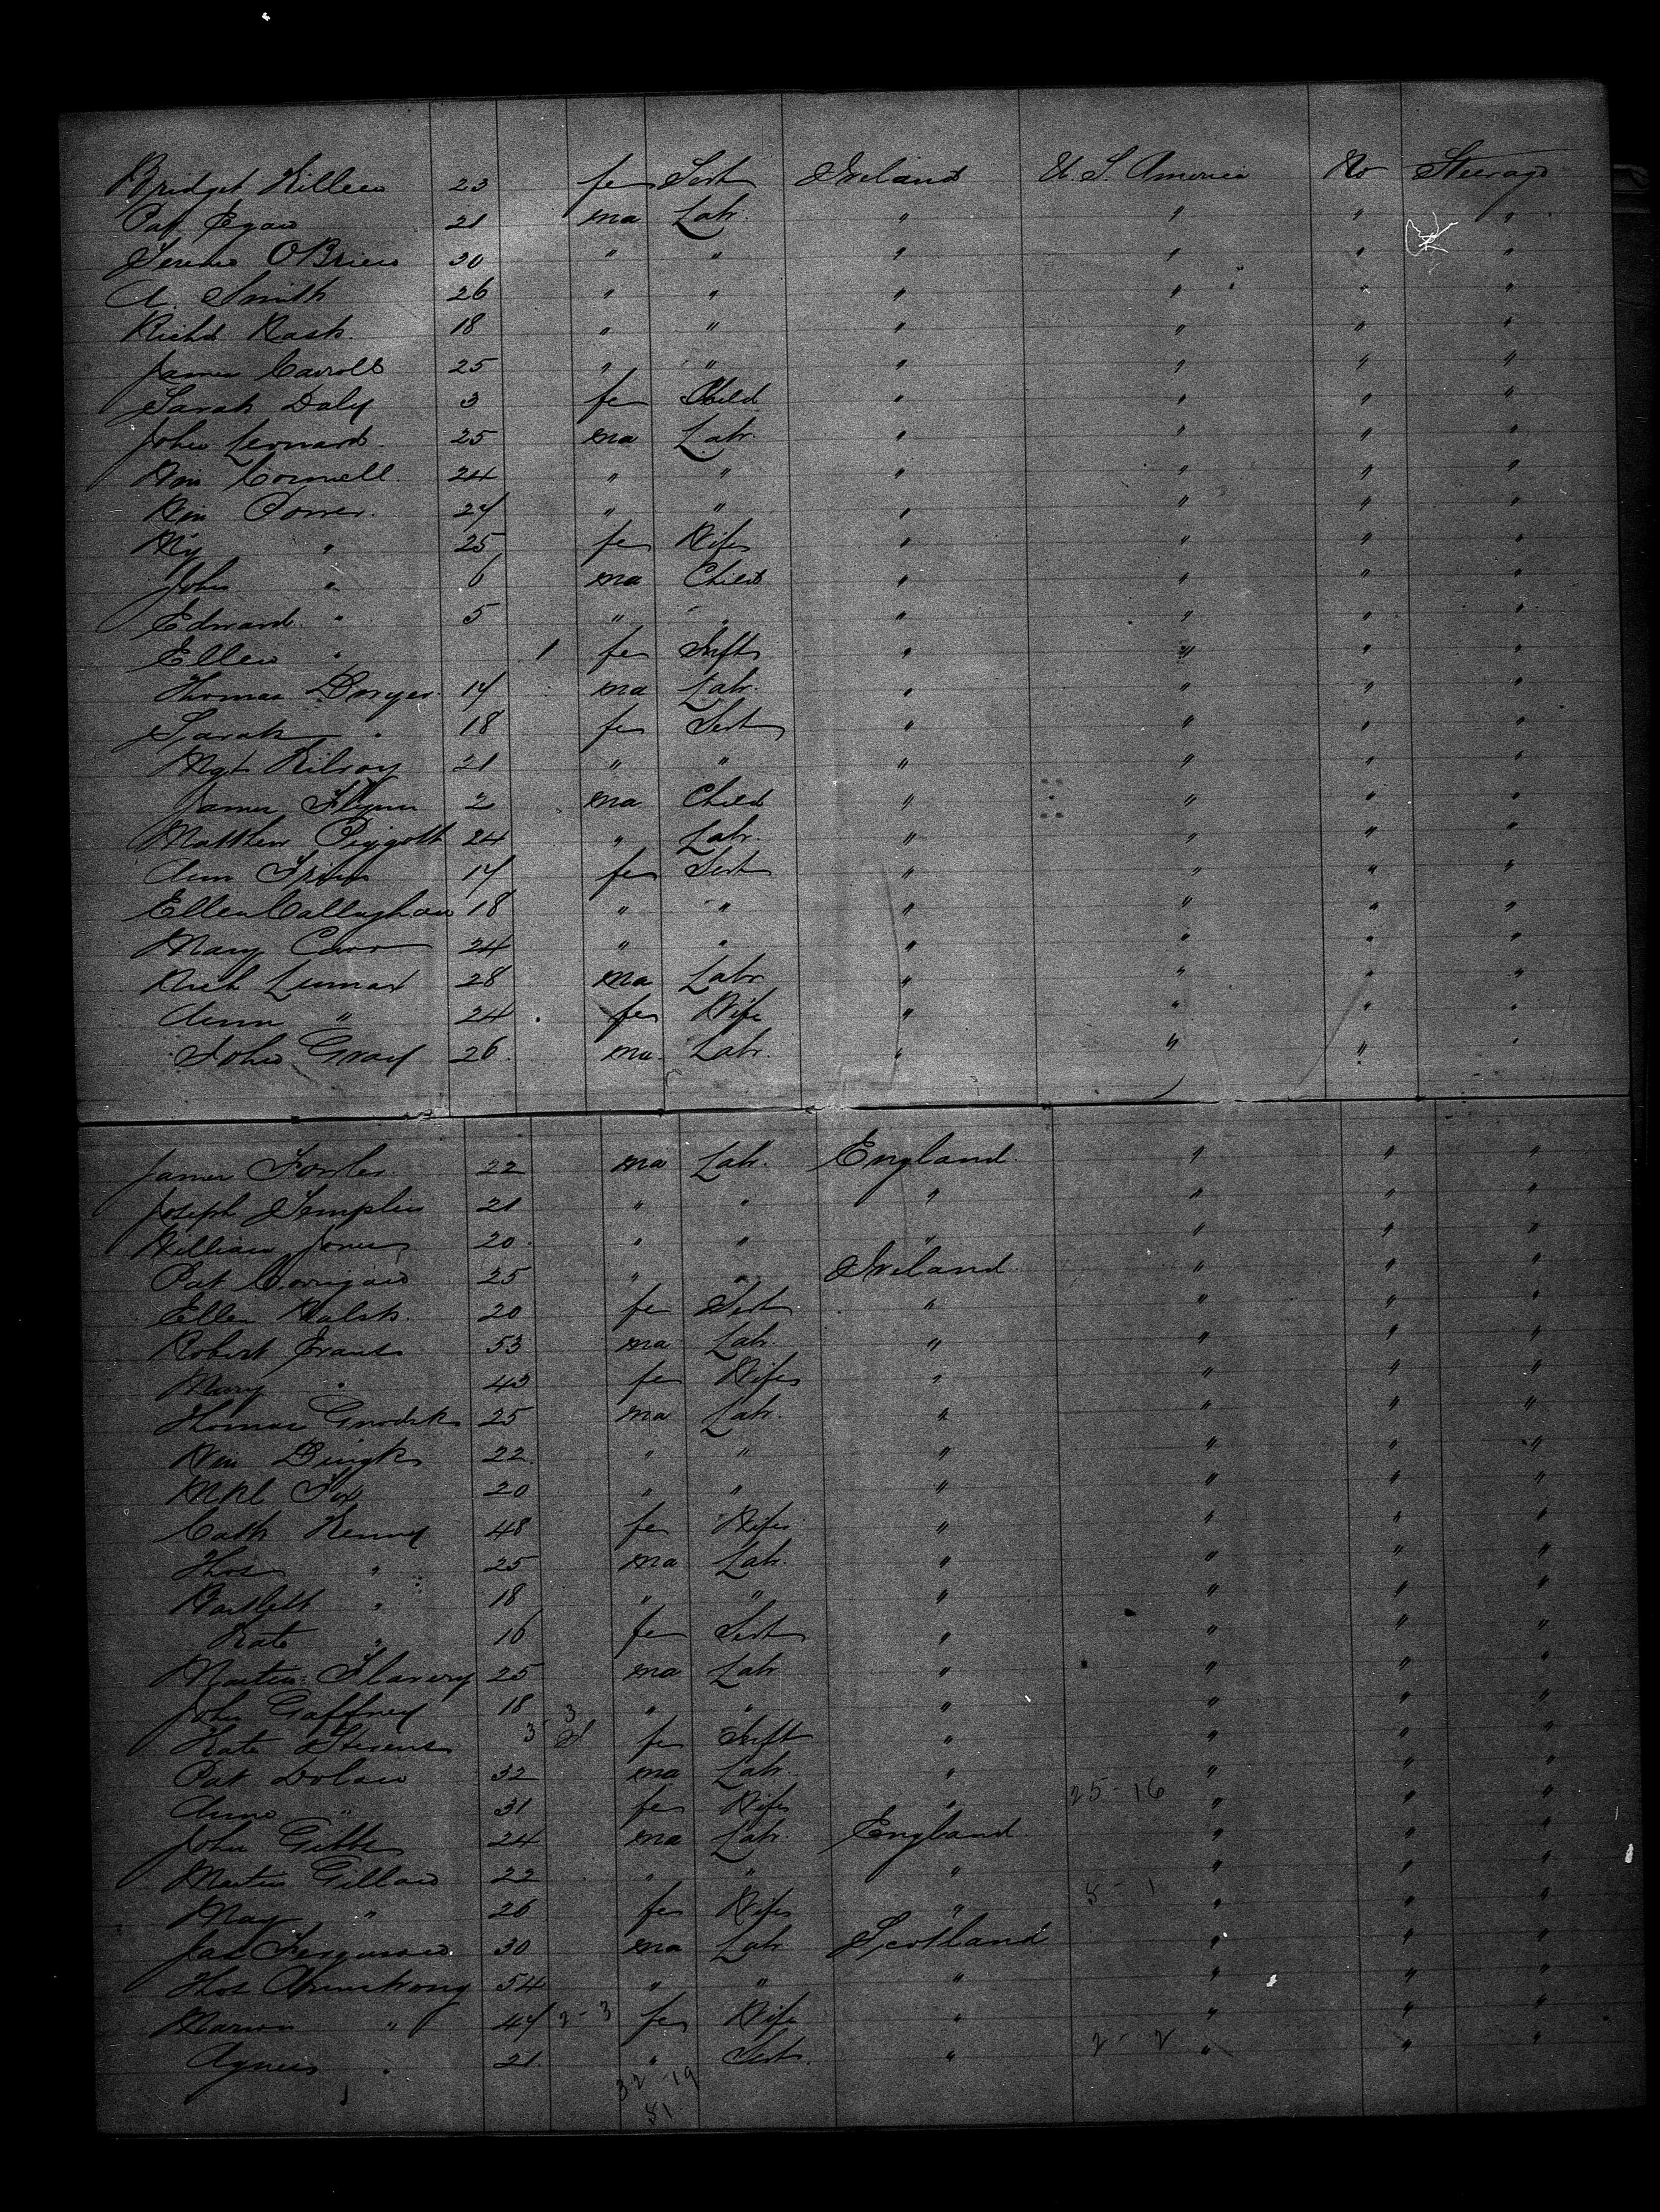 Bridget Killeen 23 fe Servt Ireland U.S. America No Steerage
Pat Egan 21 ma Labr. " " " "
Terence O'Brien 30 " " " " " "
A. Smith 26 " " " " " "
Richd Nash. 18 " " " " " "
James Carroll 25 " " " " " "
Sarah Daly 3 fe Child " " " "
John Leonard. 25 ma Labr. " " " "
Wm Connell. 24 " " " " " "
Wm Power. 27 " " " " " "
My " 25 fe Wife " " " "
John " 6 ma Child " " " "
Edward " 5 " " " " " "
Ellen " 1 fe Inft " " " "
Thomas Dwyer. 17 ma Labr. " " " "
Sarah " 18 fe Servt " " " "
Mgt Kilroy 21 " " " " " "
James Flynn 2 ma Child " " " "
Matthew Piggott 24 " Labr. " " " "
Ann 17 fe Servt " " " "
Ellen Callaghan 18 " " " " " "
Mary Carr 24 " " " " " "
Rich 28 ma Labr " " " "
Ann " 24 fe Wife " " " "
John Gray 26. ma. Labr. " " " "
James Fowler. 22 ma Labr. England " " "
Joseph Templin 21 " " " " " "
William Jones 20. " " " " " "
Pat Corrigan 25 " " Ireland " " "
Ellen Walsh. 20 fe Servt " " " "
Robert Evans 53 ma Labr. " " " "
Mary " 43 fe Wife " " " "
Thomas 25 ma Labr. " " " "
Wm 22. " " " " " "
Mkl Fox 20 " " " " " "
Cath Kenny 48 fe Wife " " " "
Thos " 25 ma Labr. " " " "
Bartlett " 18 " " " " " "
Kate " 16 fe Servt " " " "
Martin Flavery 25 ma Labr " " " "
John Gaffney 18 " " " " " "
Kate Stevens 3 3 fe Inft " " " "
Pat Dolan 32 ma Labr. " " " "
Anne " 31 fe Wife " 25-16 " " "
John Gibbs 24 ma Labr. England " " "
Martin Gillan 22 " " " " " "
May " 26 fe Wife " 8-1 " " "
Jas Ferguson 30 ma Labr Scotland " " "
Thos Armstrong 54 " " " " " "
Marion " 47 2-3 fe Wife " " " "
Agnes " 21. " Servt. " 2-2 " " "
32-19
51